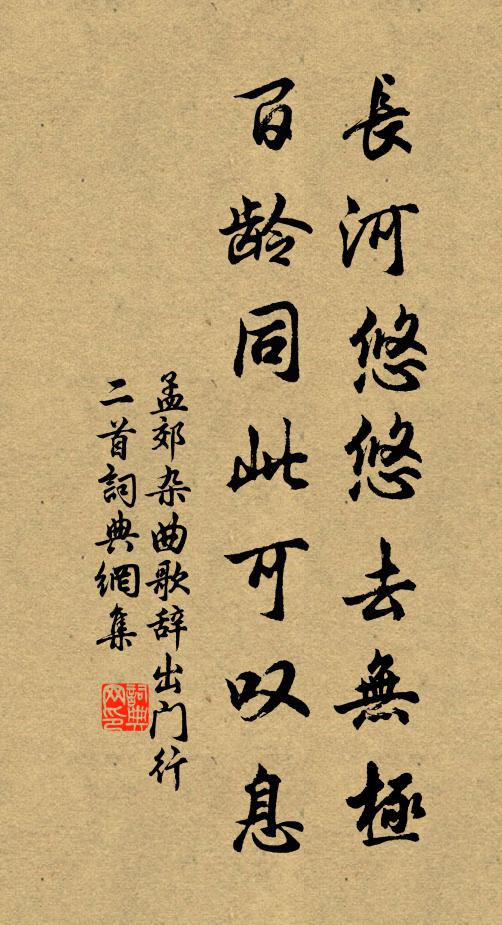 長河悠悠去無極
百龄同此可叹息
孟郊杂曲歌辞出门行
二首詞典網集
詞典
网印